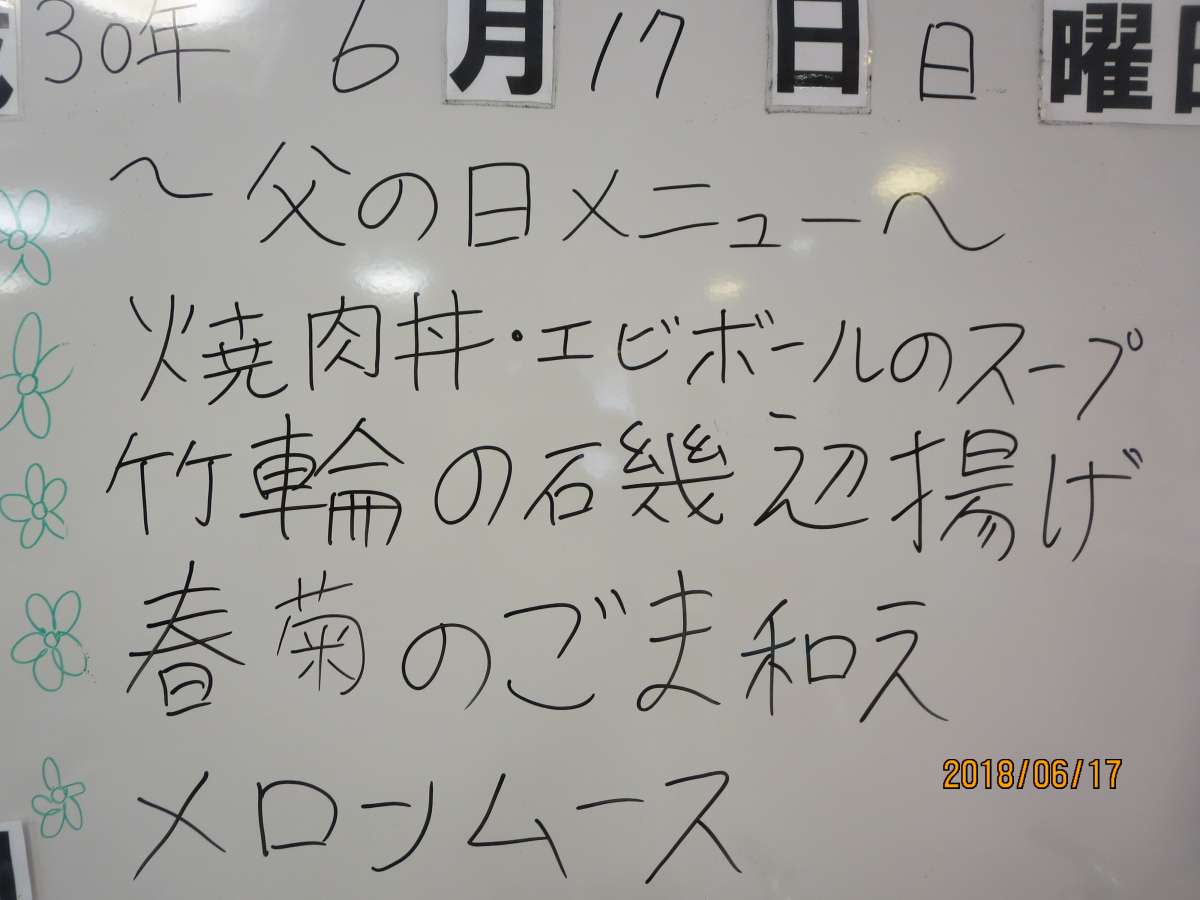 30年 6月17日 日曜日
～父の日メニュー～
焼肉丼・エビボールのスープ
竹輪の石幾辺揚げ
春菊のごま和え
メロンムース
2018/06/17